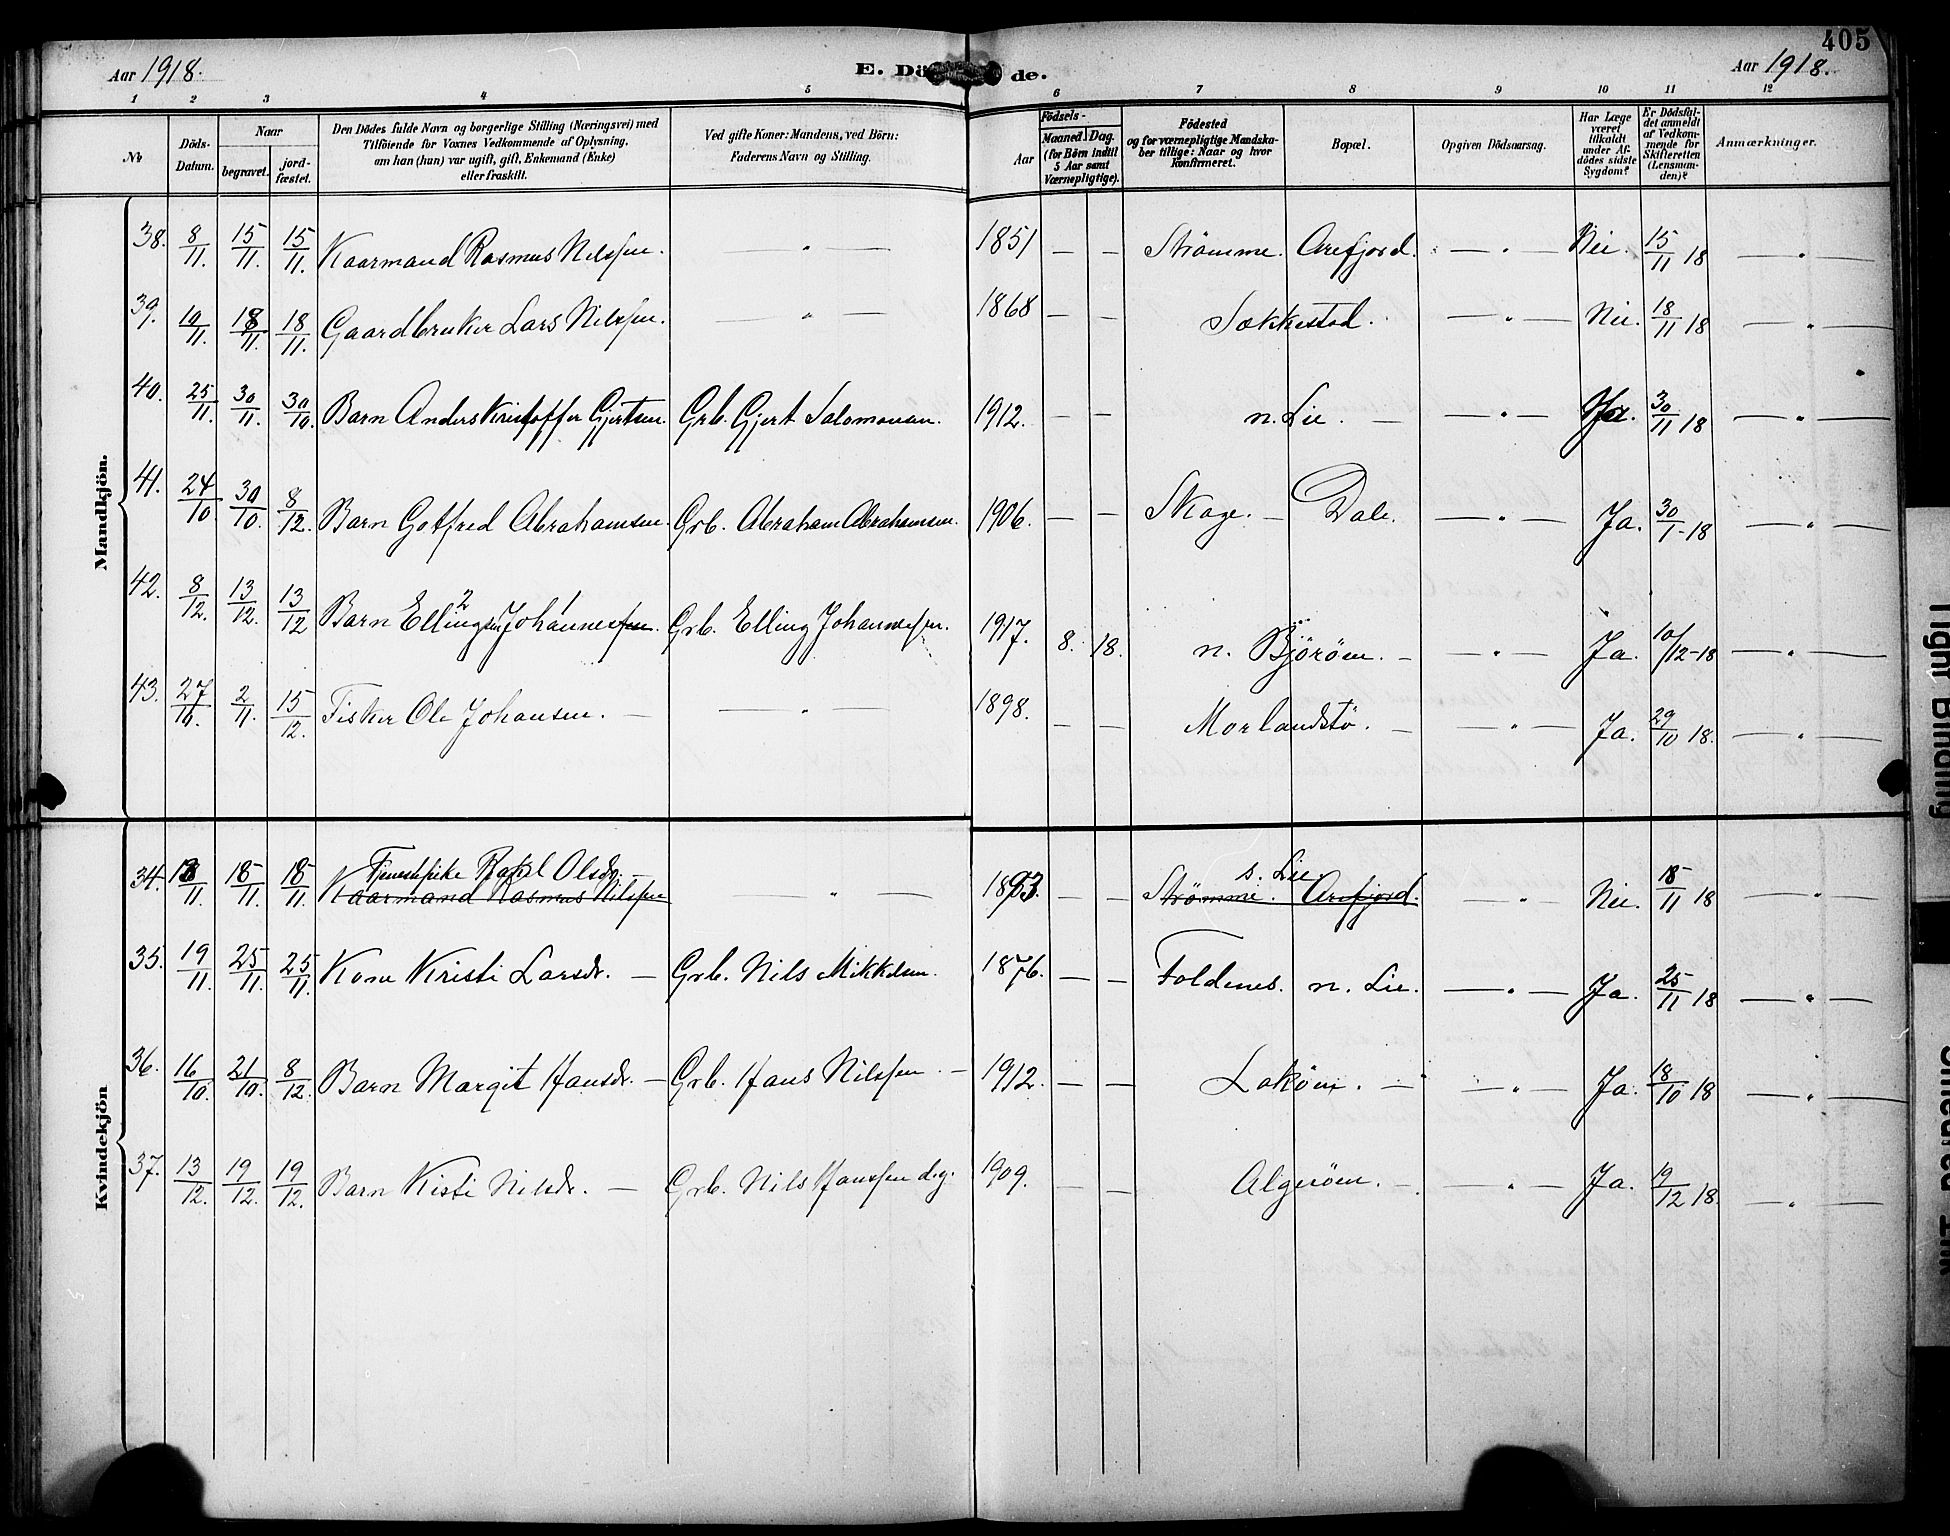 405
Aar 1918. E. Dö de. Aar 1918.
1 2 3 4 5 6 7 8 9 10 11 12
No
Döds-Datum.
Naar begravet. jord-fæstet.
Den Dödes fulde Navn og borgerlige Stilling (Næringsvei) med Tilföiende for Voxnes Vedkommende af Oplysning, om han (hun) var ugift, gift, Enkemand (Enke) eller fraskilt.
Ved gifte Koner: Mandens, ved Börn: Faderens Navn og Stilling.
Födsels-
Aar Maaned. Dag. (for Börn indtil 5 Aar samt Værnepligtige).
Födested og for værnepligtige Mandska-ber tillige: Naar og hvor Konfirmeret.
Bopæl.
Opgiven Dödsaarsag.
Har Læge været tilkaldt under Af-dödes sidste Sygdom?
Er Dödsfal-det anmeldt af Vedkom-mende for Skifteretten (Lensman-den)?
Anmærkninger.
Mandkjön.
38. 8/11. 15/11. 15/11. Kaarmand Rasmus Nilssen. — " — 1851 — — Strömme. Arefjord. — " — Nei. 15/11 18 — " —
39. 10/11. 18/11. 18/11. Gaardbruker Lars Nilssen. — " — 1868 — — Sekkestad. — " — Nei. 18/11 18 — " —
40. 25/11. 30/11. 30/10. Barn Anders Kristoffer Gjertsen. Grb. Gjert Salomonsen. 1912. — — n. Lie. — — " — Ja. 30/11 18 — " —
41. 24/10 30/10. 8/12. Barn Gotfred Abrahamsen. Grb. Abraham Abrahamsen. 1906. — — Skage. — Dale. — " — Ja. 30/1-18 — " —
42. 8/12. 13/12. 13/12 Barn Ellingsen 2 Johannessen 1. Grb. Elling Johannessen. 1917. 8. 18. n. Björöen. — — " — Ja. 10/12-18 — " —
43. 27/10. 2/11. 15/12. Fisker Ole Johansen. — — " — 1898. — — Morlandstö. — — " — Ja. 29/10 18. — " —
Kvindekjön
Tjenestpike Rakel Olsdr. s. Lie
34. 13/11 18/11. 18/11. Kaarmand Rasmus Nilssen — " — 1893. — — Strömme. Arefjord. — " — Nei. 18/11 18 — " —
35. 19/11. 25/11. 25/11. Kone Kristi Larsdr. — Grb. Nils Mikkelsen. 1876. — — Foldenes. n. Lie. — " — Ja. 25/11 18 — " —
36. 16/10. 21/10. 8/12. Barn Margit Hansdr. — Grb. Hans Nilssen. — 1912. — — Loköen. — — " — Ja. 18/10 18 — " —
37. 13/12. 19/12. 19/12. Barn Kisti Nilsdr. — Grb. Nils Hanssen d.y. 1909. — — Algeröen. — — " — Ja. 19/12 18. — " —
Tight Binding
Smeared Ink